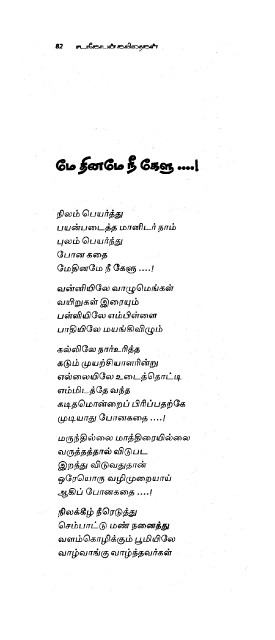 82
மே தினமே நீ கேளு ....!
நிலம் பெயர்த்து
பயன்படைத்த மானிடர் நாம்
புலம் பெயர்ந்து
போன கதை
மேதினமே நீ கேளு ....!
வன்னியிலே வாழுமெங்கள்
வயிறுகள் இரையும்
பள்ளியிலே எம்பிள்ளை
பாதியிலே மயங்கிவிழும்
கல்லிலே நார்உரித்த
கடும் முயற்சியாளரின்று
எல்லையிலே உடைத்தொட்டி
எம்மிடத்தே வந்த
கடிதமொன்றைப் பிரிப்பதற்கே
முடியாது போனகதை ....!
மருந்தில்லை மாத்திரையில்லை
வருத்தத்தால் விடுபட
இறந்து விடுவதுதான்
ஒரேயொரு வழிமுறையாய்
ஆகிப் போனகதை ....!
நிலக்கீழ் நீரெடுத்து
செம்பாட்டு மண் நனைத்து
வளம்கொழிக்கும் பூமியிலே
வாழ்வாங்கு வாழ்ந்தவர்கள்